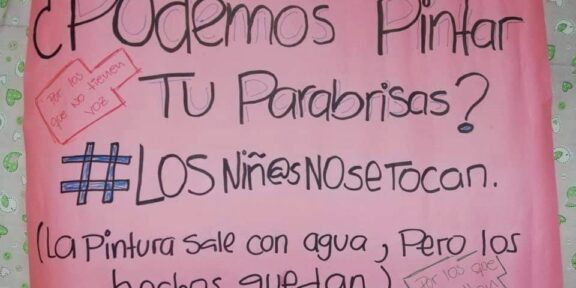 ¿Podemos Pintar
Por los
que no tienen
voz
TU Parabrisas?
#LOS Niñ@s NO se Tocan.
(La Pintura sale con agua, Pero los
hechos quedan)
Por los que